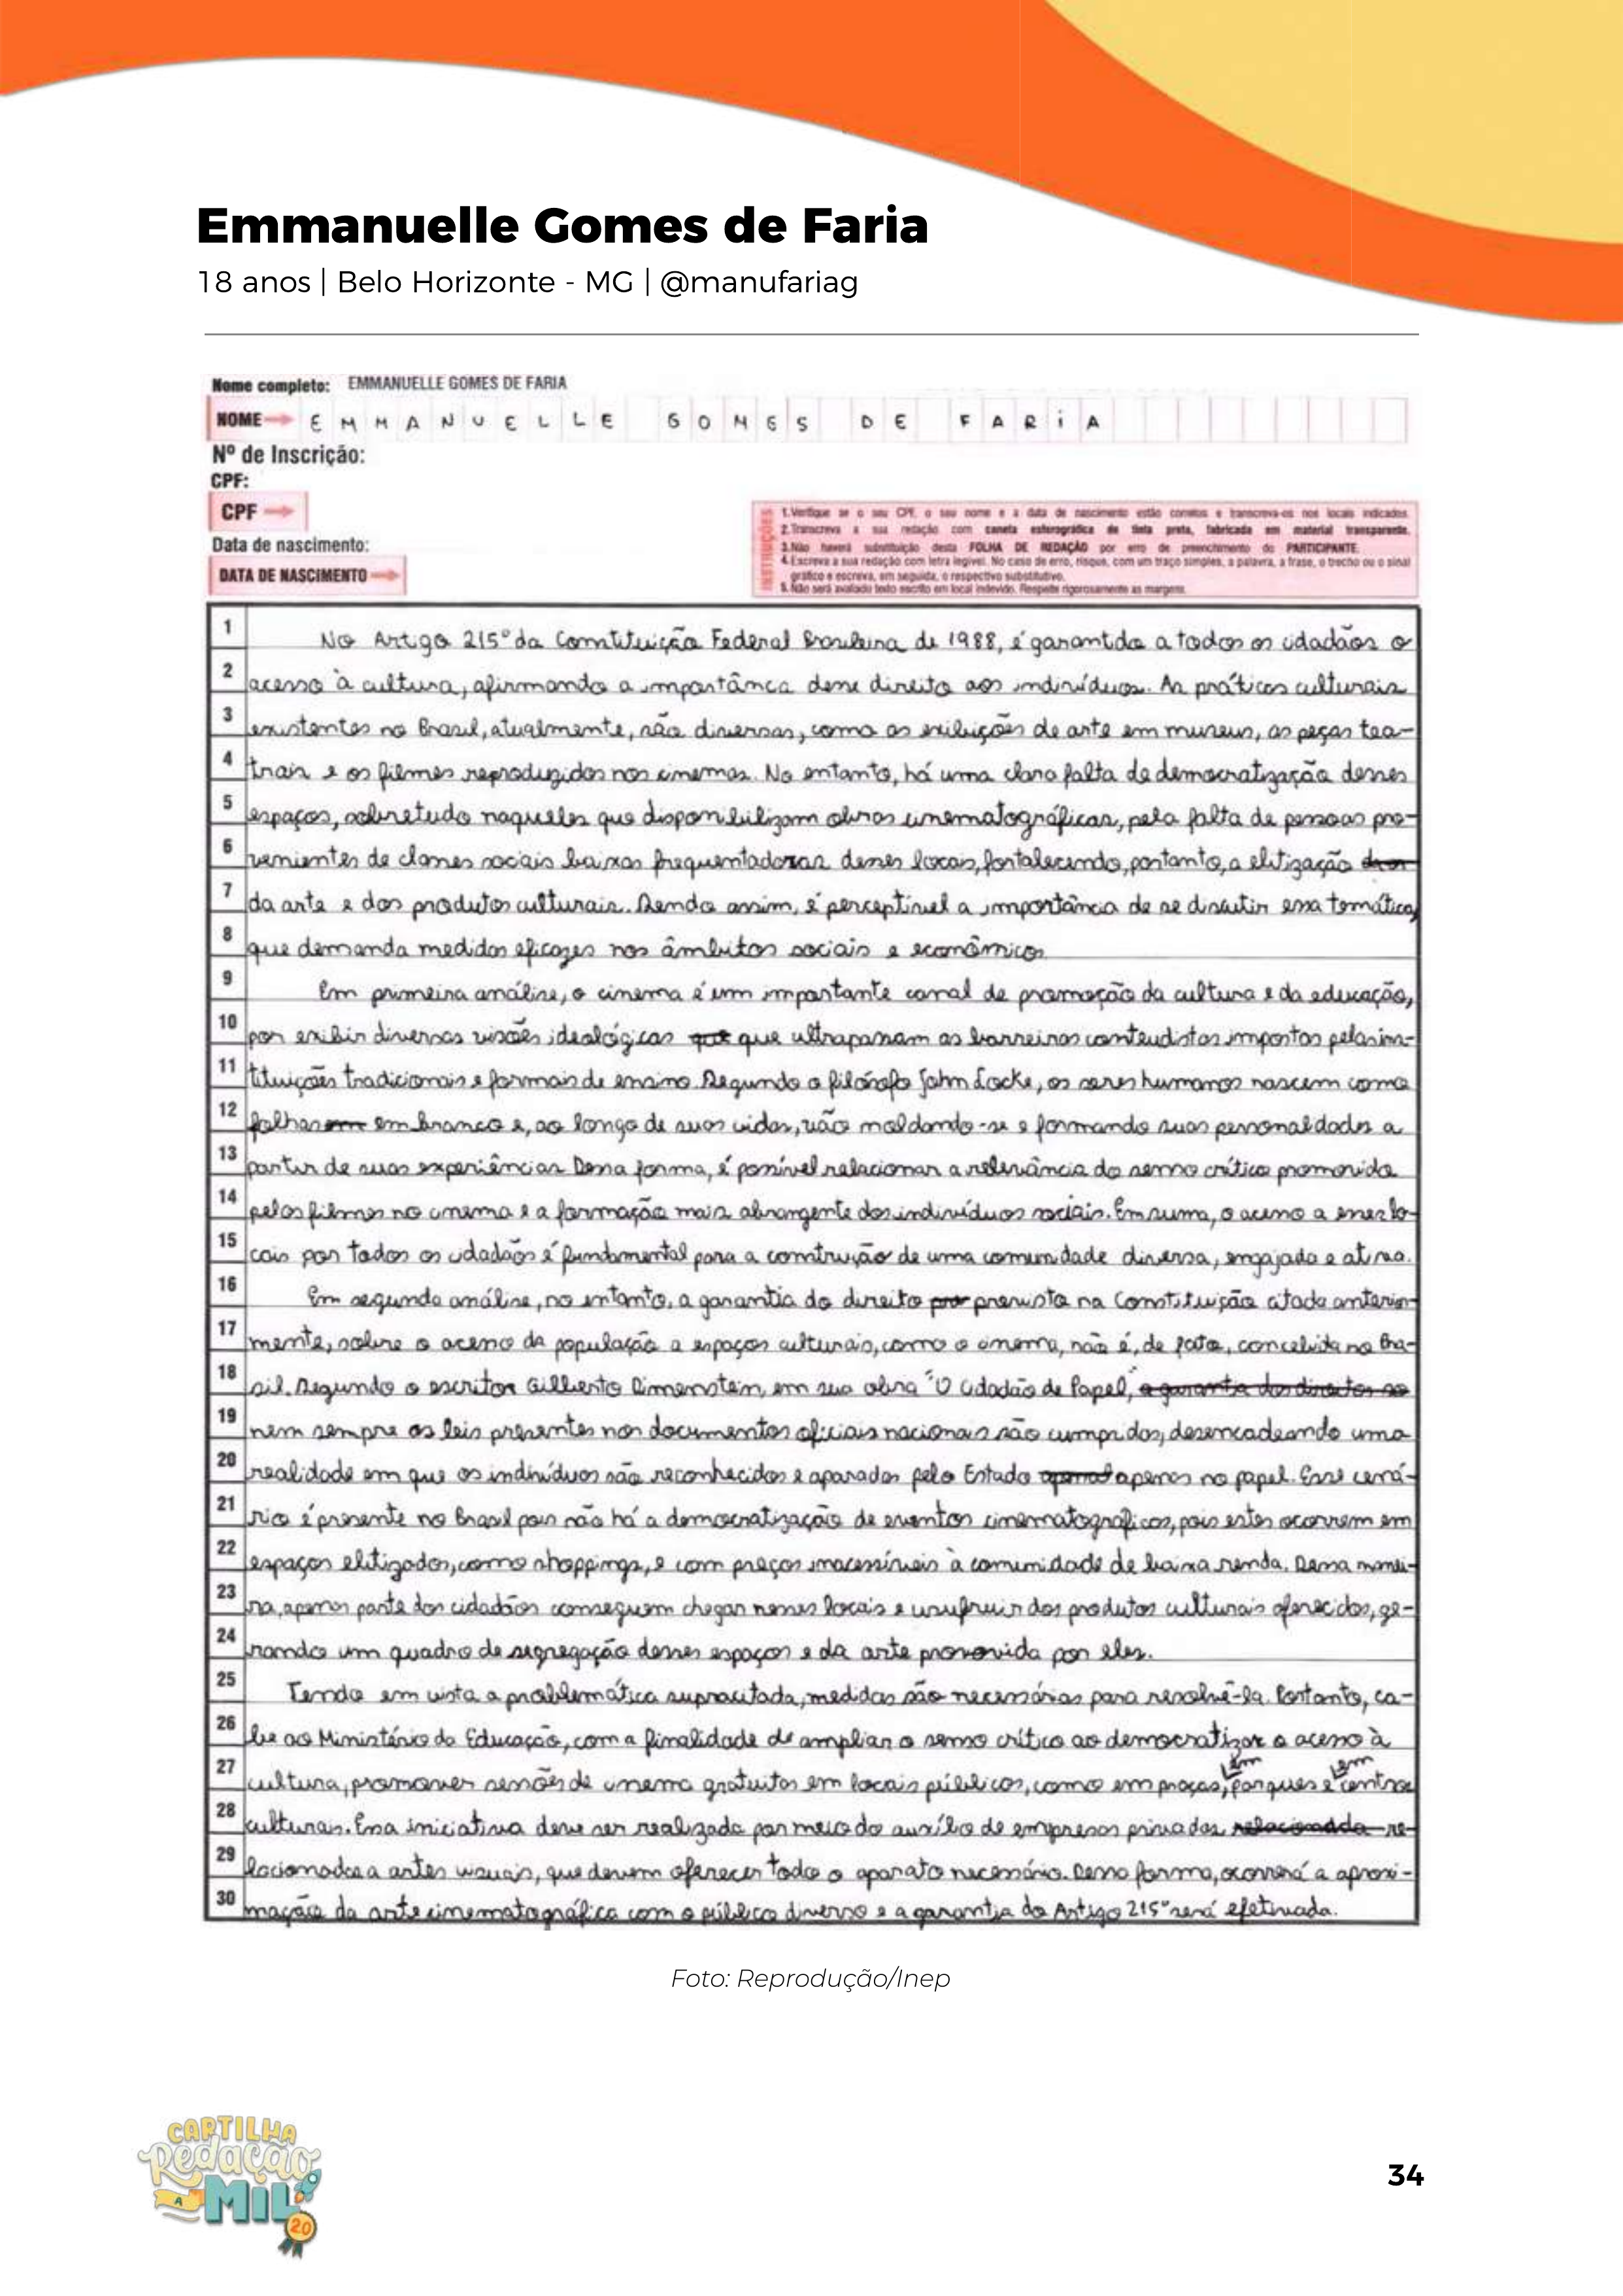 Emmanuelle Gomes de Faria
18 anos | Belo Horizonte - MG | @manufariag
Nome completo: EMMANUELLE GOMES DE FARIA
NOME EMMANUELLE GOMES DE FARiA
Nº de Inscrição:
CPF:
CPF
Data de nascimento:
DATA DE NASCIMENTO
INSTRUÇÕES
1.Verifique se o seu CPF, o seu nome e a data de nascimento estão corretos e transcreva-os nos locais indicados.
2.Transcreva a sua redação com caneta esferográfica de tinta preta, fabricada em material transparente.
3.Não haverá substituição desta FOLHA DE REDAÇÃO por erro de preenchimento do PARTICIPANTE.
4.Escreva a sua redação com letra legível. No caso de erro, risque, com um traço simples, a palavra, a frase, o trecho ou o sinal
gráfico e escreva, em seguida, o respectivo substitutivo.
5.Não será avaliado texto escrito em local indevido. Respeite rigorosamente as margens.
1 No Artigo 215º da Constituição Federal Brasileira de 1988, é garantido a todos os cidadãos o
2 acesso à cultura, afirmando a importância desse direito aos indivíduos. As práticas culturais
3 existentes no Brasil, atualmente, são diversas, como as exibições de arte em museus, as peças tea-
4 trais e os filmes reproduzidos nos cinemas. No entanto, há uma clara falta de democratização desses
5 espaços, sobretudo naqueles que disponibilizam obras cinematográficas, pela falta de pessoas pro-
6 venientes de classes sociais baixas frequentadoras desses locais, fortalecendo, portanto, a elitização
7 da arte e dos produtos culturais. Sendo assim, é perceptível a importância de se discutir essa temática,
8 que demanda medidas eficazes nos âmbitos sociais e econômicos
9 Em primeira análise, o cinema é um importante canal de promoção da cultura e da educação,
10 por exibir diversas visões ideológicas que que ultrapassam as barreiras conteudistas impostas pelas ins-
11 tituições tradicionais e formais de ensino. Segundo o filósofo John Locke, os seres humanos nascem como
12 folhas em em branco e, ao longo de suas vidas, vão moldando-se e formando suas personalidades a
13 partir de suas experiências. Dessa forma, é possível relacionar a relevância do senso crítico promovido
14 pelos filmes no cinema e a formação mais abrangente dos indivíduos sociais. Em suma, o acesso a esses lo-
15 cais por todos os cidadãos é fundamental para a construção de uma comunidade diversa, engajada e ativa.
16 Em segunda análise, no entanto, a garantia do direito pre previsto na Constituição citada anterior-
17 mente, sobre o acesso da população a espaços culturais, como o cinema, não é, de fato, concebida no Bra-
18 sil. Segundo o escritor Gilberto Dimenstein, em sua obra "O Cidadão de Papel", a garantia dos direitos
19 nem sempre as leis presentes nos documentos oficiais nacionais são cumpridas, desencadeando uma
20 realidade em que os indivíduos são reconhecidos e aparados pelo Estado apenas no papel. Esse cená-
21 rio é presente no Brasil pois não há a democratização de eventos cinematográficos, pois estes ocorrem em
22 espaços elitizados, como shoppings, e com preços inacessíveis à comunidade de baixa renda. Dessa manei-
23 ra, apenas parte dos cidadãos conseguem chegar nesses locais e usufruir dos produtos culturais oferecidos, ge-
24 rando um quadro de segregação desses espaços e da arte promovida por eles.
25 Tendo em vista a problemática supracitada, medidas são necessárias para resolvê-la. Portanto, ca-
26 be ao Ministério da Educação, com a finalidade de ampliar o senso crítico ao democratizar o acesso à
27 cultura, promover sessões de cinema gratuitas em locais públicos, como em praças, em parques e em centros
28 culturais. Essa iniciativa deve ser realizada por meio do auxílio de empresas privadas relacionadda re-
29 lacionadas a artes visuais, que devem oferecer todo o aparato necessário. Dessa forma, ocorrerá a aproxi-
30 mação da arte cinematográfica com o público diverso e a garantia do Artigo 215º será efetivada.
Foto: Reprodução/Inep
CARTILHA
Redação
A MIL
2.0
34